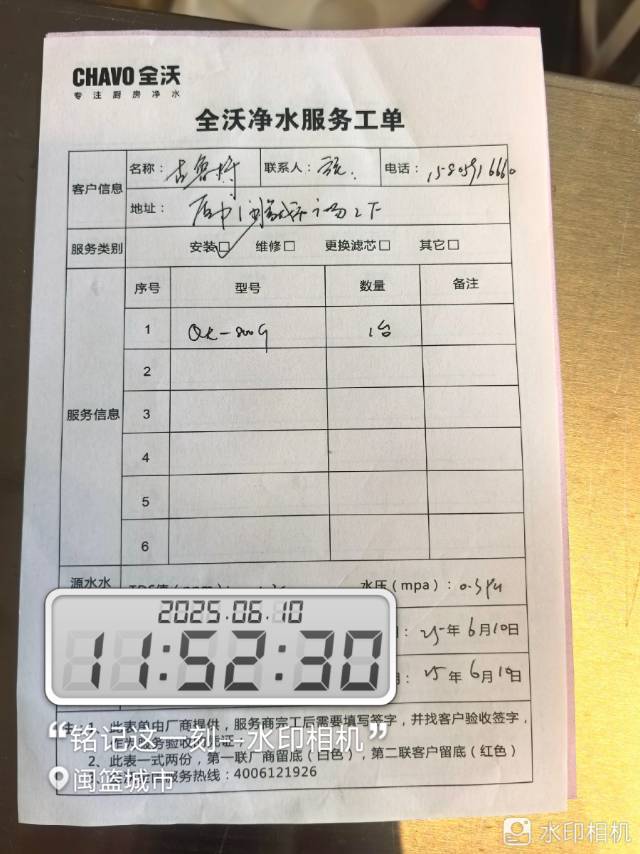 CHAVO 全沃
专注厨房净水
全沃净水服务工单
客户信息
名称：
联系人：
电话：15805916660
地址：
服务类别 安装☑ 维修□ 更换滤芯□ 其它□
服务信息
序号 型号 数量 备注
1 QR-800G 1台
2
3
4
5
6
源水水
水压（mpa）：
2025.06.10
25年6月10日
11:52:30
25年6月10日
注：1、此表单由厂商提供，服务商完工后需要填写签字，并找客户验收签字，
“铭记这一刻－水印相机”
2、此表一式两份，第一联厂商留底（白色），第二联客户留底（红色）
服务热线：4006121926
闽篮城市
水印相机